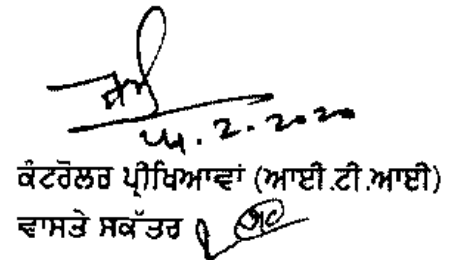 .2.2020
ਕੰਟਰੋਲਰ ਪ੍ਰੀਖਿਆਵਾਂ (ਆਈ.ਟੀ.ਆਈ)
ਵਾਸਤੇ ਸਕੱਤਰ